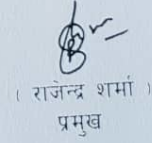 ( राजेन्द्र शर्मा )
प्रमुख